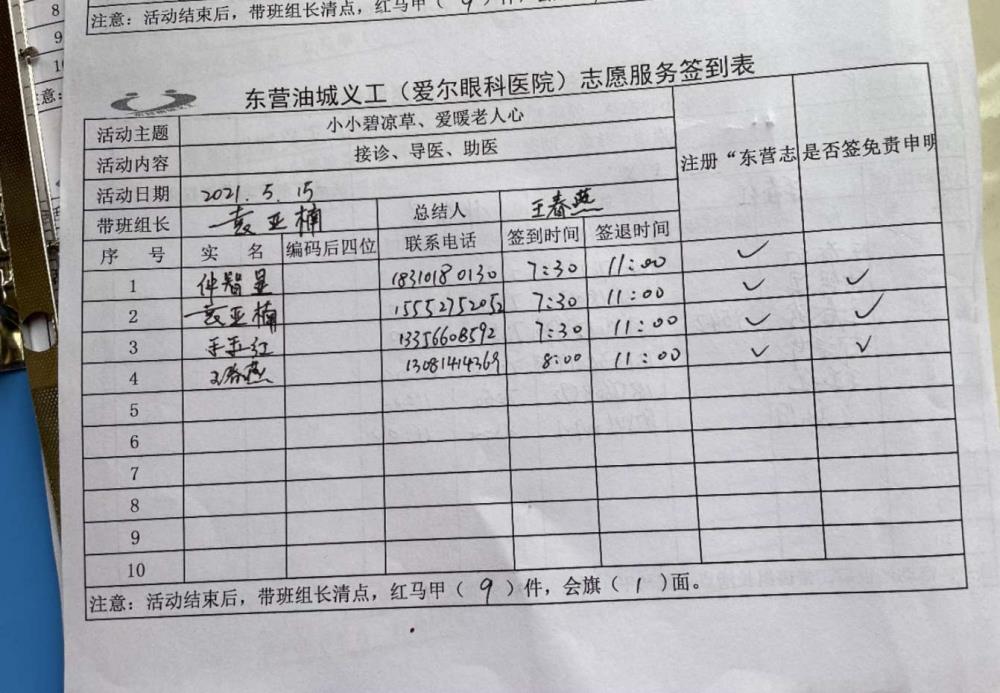 8
注意：活动结束后，带班组长清点，红马甲（ 9 ）件，
9
10
意：
东营油城义工（爱尔眼科医院）志愿服务签到表
活动主题 小小碧凉草、爱暖老人心
活动内容 接诊、导医、助医
注册“东营志 是否签免责申明
活动日期 2021.5.15
带班组长 袁亚楠 总结人 王春燕
序 号 实 名 编码后四位 联系电话 签到时间 签退时间
1 仲智星 18310180130 7:30 11:00 ✓ ✓
2 袁亚楠 15552752052 7:30 11:00 ✓ ✓
3 13356608592 7:30 11:00 ✓ ✓
4 王春燕 13081414369 8:00 11:00 ✓ ✓
5
6
7
8
9
10
注意：活动结束后，带班组长清点，红马甲（ 9 ）件，会旗（ 1 ）面。